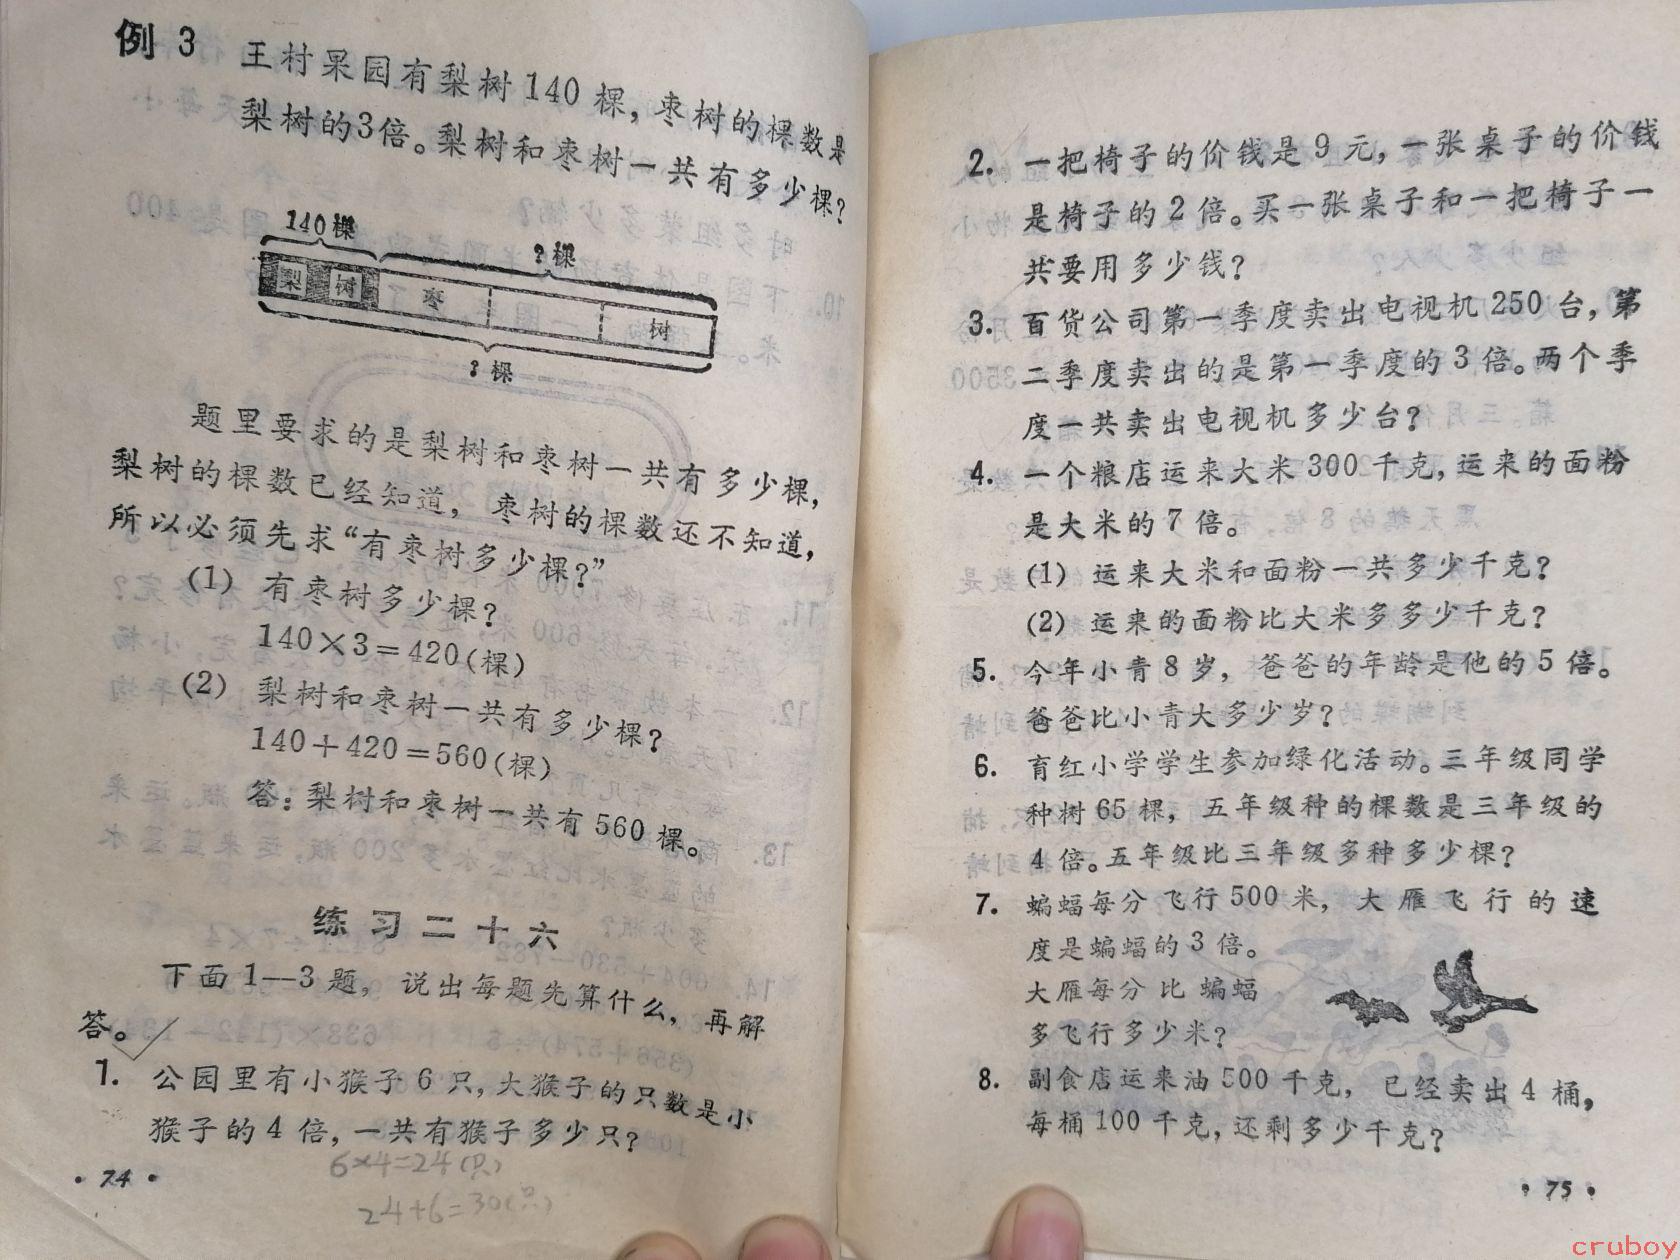 例 3 王村果园有梨树140棵，枣树的棵数是
梨树的3倍。梨树和枣树一共有多少棵？
140棵
?棵
梨 树 枣 树
?棵
题里要求的是梨树和枣树一共有多少棵，
梨树的棵数已经知道，枣树的棵数还不知道，
所以必须先求“有枣树多少棵？”
(1) 有枣树多少棵？
140×3=420(棵)
(2) 梨树和枣树一共有多少棵？
140+420=560(棵)
答：梨树和枣树一共有560棵。
练习二十六
下面1—3题，说出每题先算什么，再解
答。
1. 公园里有小猴子6只，大猴子的只数是小
猴子的4倍，一共有猴子多少只？
6×4=24(只)
24+6=30(只)
• 74 •
2. 一把椅子的价钱是9元，一张桌子的价钱
是椅子的2倍。买一张桌子和一把椅子一
共要用多少钱？
3. 百货公司第一季度卖出电视机250台，第
二季度卖出的是第一季度的3倍。两个季
度一共卖出电视机多少台？
4. 一个粮店运来大米300千克，运来的面粉
是大米的7倍。
(1) 运来大米和面粉一共多少千克？
(2) 运来的面粉比大米多多少千克？
5. 今年小青8岁，爸爸的年龄是他的5倍。
爸爸比小青大多少岁？
6. 育红小学学生参加绿化活动。三年级同学
种树65棵，五年级种的棵数是三年级的
4倍。五年级比三年级多种多少棵？
7. 蝙蝠每分飞行500米，大雁飞行的速
度是蝙蝠的3倍。
大雁每分比蝙蝠
多飞行多少米？
8. 副食店运来油500千克，已经卖出4桶，
每桶100千克，还剩多少千克？
• 75 •
cruboy